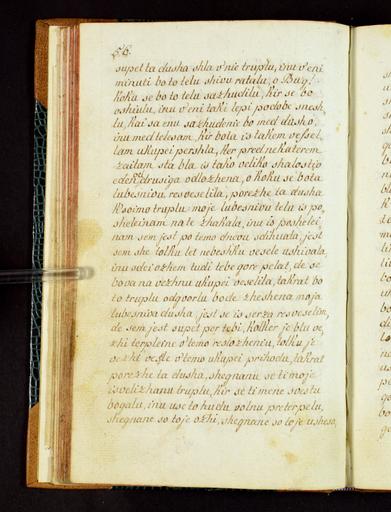 56.
supet ta dusha shla v'nie truplu, inu v'eni
minuti bo to telu shivu ratalu, o Bug!
koku se bo to telu sazhudilu, kir se bo
oshivilu, inu v'eni taki lepi podobe snesh,
lu, kai sa enu sazhudenie bo med dusho,
inu med telesam, kir bota is takem vessel,
lam ukupei pershla, ker pred nekaterem
zaitam sta bla is tako veliko shalostjo
eden drusiga odlozhena, o koku se bota
lubesnivu resveselila, porezhe ta dusha
K'svoimo truplu moje lubesnivu telu is po,
sheleinam na te zhakala, inu is peshelei,
nam sem jest po temo dnevu sdihuala, jest
sem she tolku let nebeshku vesele ushivala,
inu sdei ozhem tudi tebe gore pelat, de se
bova na vezhnu ukupei veselila, takrat bo
to truplu odgovorlu bode zheshena moja
lubesniva dusha, jest se is serza resveselim,
de sem jest supet per tebi, kolker je blu ve,
zhi terplenie v'temoreslozheniu, tolku je
vezhi vesele v'temo ukupei prihodu, takrat
porezhe ta dusha, shegnanu se ti moje
isvelizhanu truplu, kir se ti mene svestu
bogalu, inu use to hudu volnu preterpelu,
shegnane so toje ozhi, shegnane so toje ushesa,